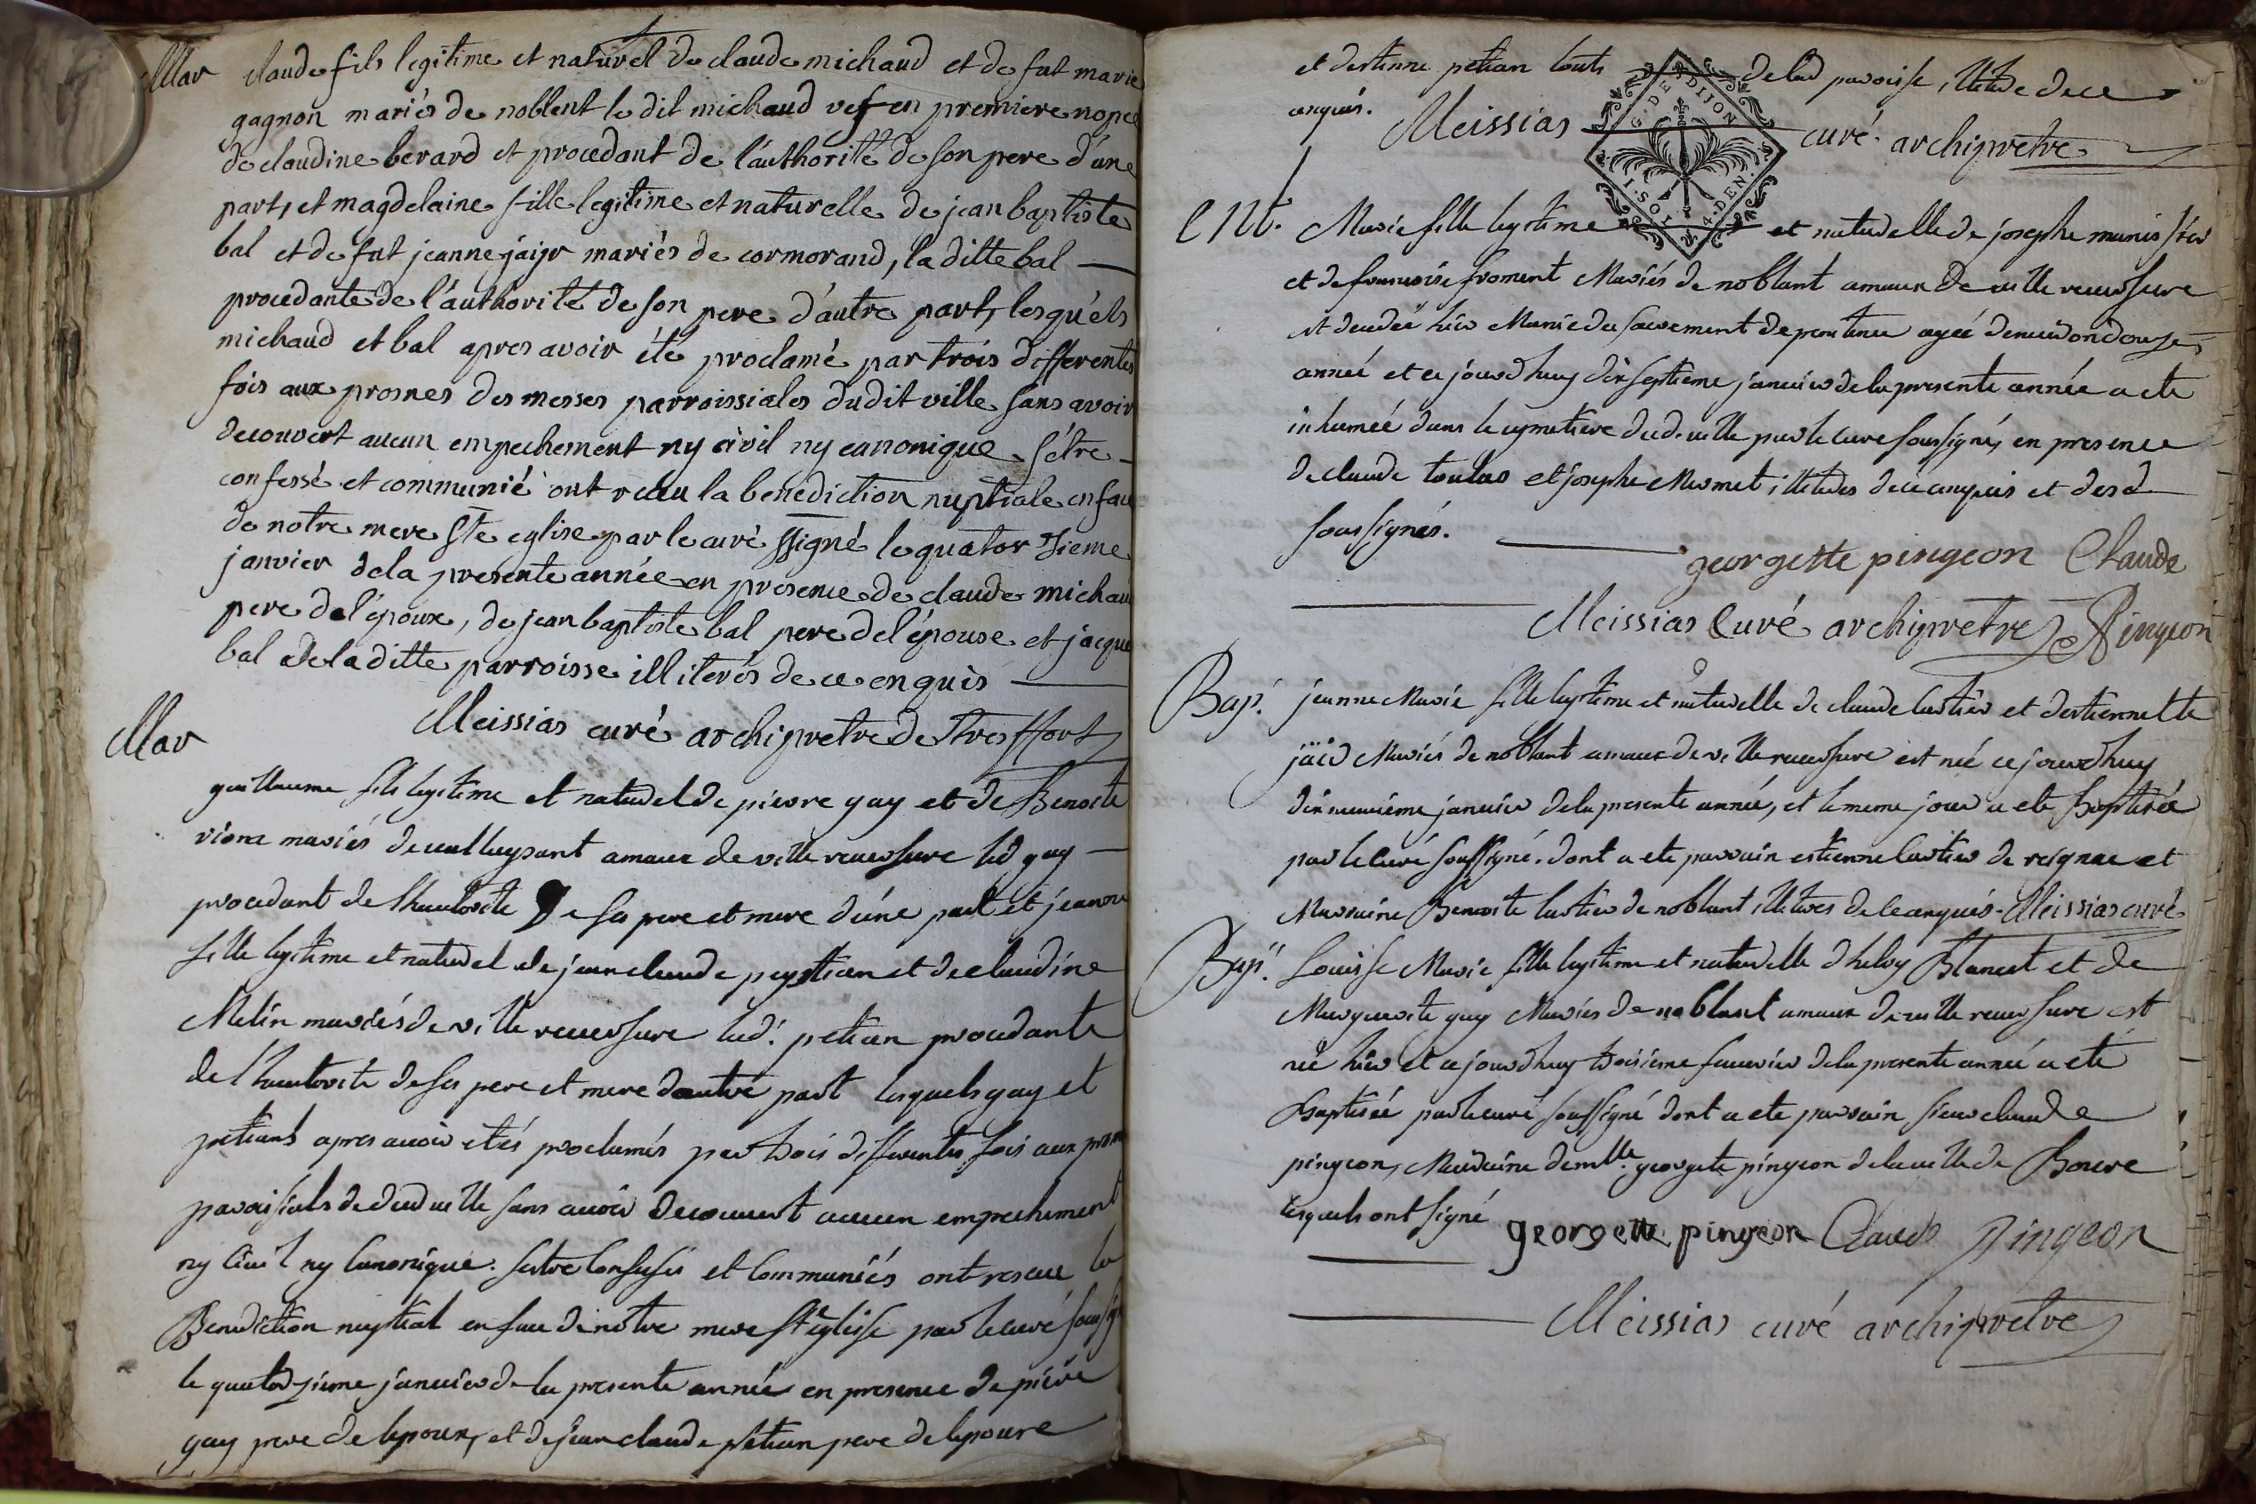 Mar claude fils legitime et naturel de claude michaud et de fut marie
gagnon mariés de noblent le dit michaud vef en premiere nopce
de claudine berard et procedant de l'authorité de son pere d'une
part, et magdelaine fille legitime et naturelle de jean baptiste
bal et de fut jeanne jaijr mariés de cormorand, la ditte bal
procedante de l'authorité de son pere d'autre part, lesquels
michaud et bal apres avoir été proclamé par trois differentes
fois aux prosnes des messes parroissiales dudit ville sans avoir
decouvert aucun empechement ny civil ny canonique. s'etre
confessé et communié ont reçu la benediction nuptiale en face
de notre mere Ste eglise par le curé ssigné le quatorzieme
janvier de la presente année en presence de claude michaud
pere de l'époux, de jean baptiste bal pere de l'épouse et jacque
bal de la ditte parroisse illiterés de ce enquis
Meissias curé archipretre de treffort
Mar
guillaume fils legitime et naturel de pierre gay et de Benoite
mariés de amaux de ville reversure led gay
procedant de lhautorite de ses pere et mere d'une part et jeanne
fille legitime et naturel de jean claude peystian et de claudine
Melin mariés de ville reversure lad. petian procedante
de l'hautorite de ses pere et mere dautre part lesquels gay et
petians apres avoir etés proclamés par trois differentes fois aux
paroissials de dud ville sans avoir decouvert aucun empechement
ny civil ny canonique. setre confessés et communiés ont resceu la
Benediction nuptial en face de notre mere Ste eglise par le curé
le quatorzieme janvier de la presente année en presence de piere
gay pere de lepoux, et de jean claude petian pere de lepouse
et destienne petian touts de lad paroisse, illiteré de ce
enquis. Meissias curé archipretre
G. DE DIJON
1. SOL 4. DEN.
Ent. Marie fille legitime et naturelle de josephe
et de francoise froment Mariés de noblant amaux de ville reversure
et decedeé hier Munie du sacrement de penitence ageé denviron douze
anneé et ce jourdhuy dixseptieme janvier de la presente année a ete
inhumeé dans le cymetiere dud. ville par le cure soussigné, en presence
de claude toulas et josephe Mermet, illiterés de ce enquis et des d
soussignés.
georgette pingeon Claude
Meissias Curé archipretre Pingeon
Bap. jeanne Marie fille legitime et naturelle de claude lastier et destiennette
Mariés de noblant amaux de ville reversure est neé ce jourdhuy
dixneuvieme janvier de la presente anneé, et le meme jour a ete Baptiseé
par le Curé soussigné. dont a ete parrain estienne lastier de reignac et
Marraine Benoite lastier de noblant illiteres de ce enquis. Meissias curé
Bap. Louise Marie fille legitime et naturelle d heloy Blancet et de
Marguerite gay Mariés de noblant amaux de ville reversure est
neé hier et ce jourdhuy troisieme fevrier de la presente anneé a eté
Baptiseé par le curé soussigné dont a ete parrain sieur claude
pingeon, Marraine demlle. georgete pingeon de la ville de Bource
lesquels ont signé georgette pingeon Claude Pingeon
Meissias curé archipretre